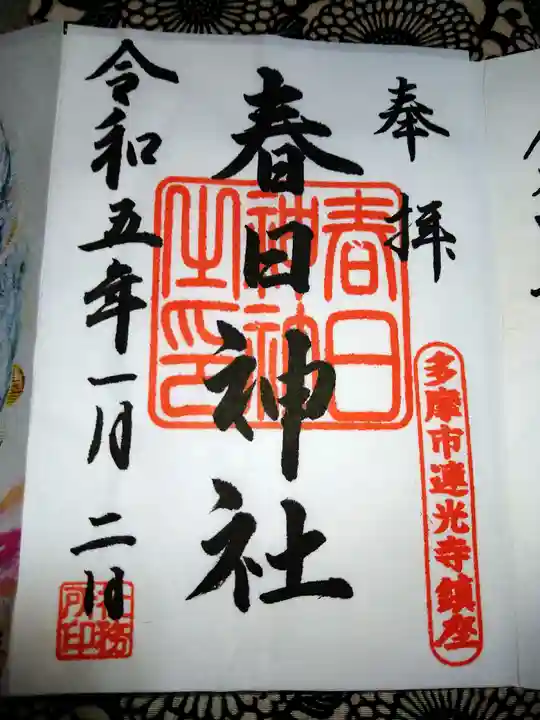 奉拝
多摩市連光寺鎮座
春日神社
春日神社之印
令和五年一月二日
社務所印